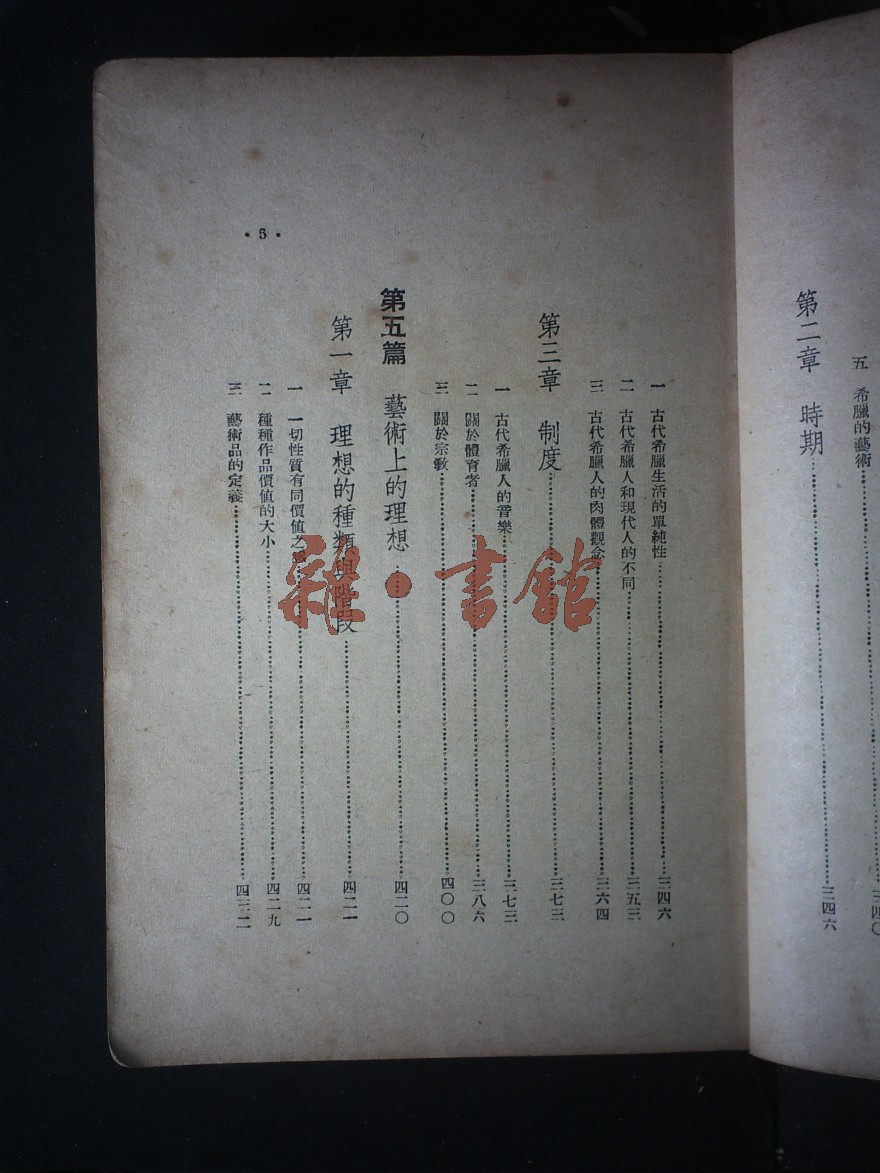 五　希臘的藝術……三四〇
第二章　時期……三四六
一　古代希臘生活的單純性……三四六
二　古代希臘人和現代人的不同……三五三
三　古代希臘人的肉體觀念……三六四
第三章　制度……三七三
一　古代希臘人的音樂……三七三
二　關於體育者……三八六
三　關於宗教……四〇〇
第五篇　藝術上的理想……四二〇
第一章　理想的種類與階段……四二一
一　一切性質有同價值之……四二一
二　種種作品價值的大小……四二九
三　藝術品的定義……四三二
• 5 •
雜·書館